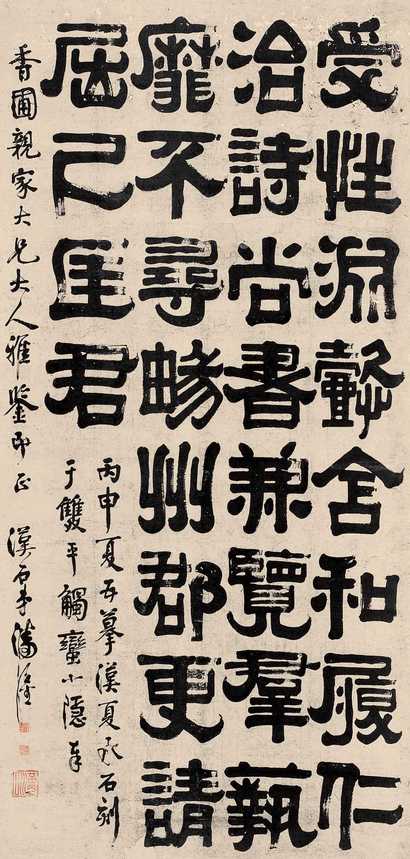 受性渊懿含和履仁
治詩尚書兼覽羣藝
靡不尋暢州郡更請
屈己匡君
丙申夏五摹漢夏承石刻
于雙平觸蠻小隱奉
香圃親家大兄大人雅鑒即正 漢石弟潘